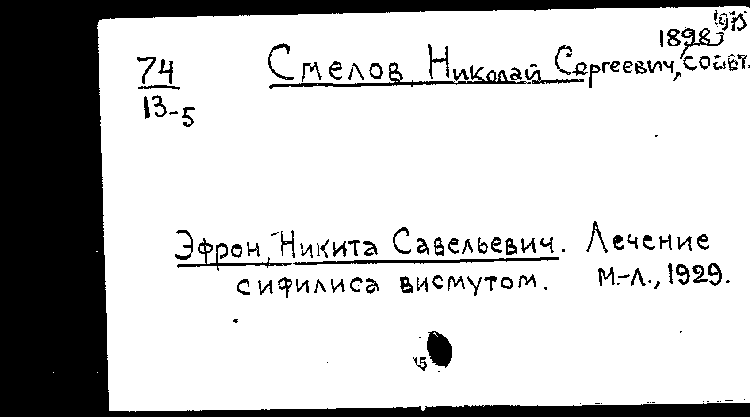 1898 1975
74 Смелов, Николай Сергеевич, соавт.
13-5
Эфрон, Никита Савельевич. Лечение
сифилиса висмутом. М.-Л., 1929.